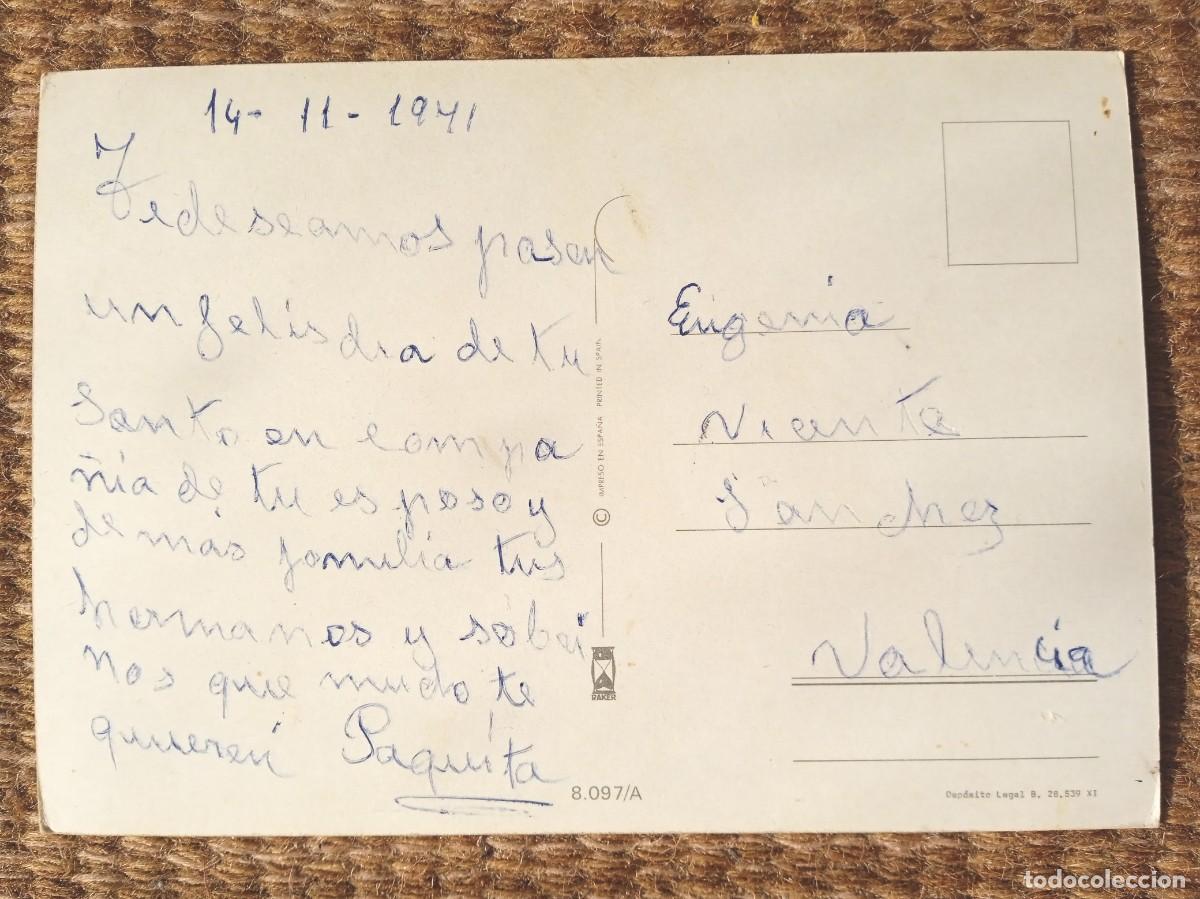 14- 11 - 1971
Tedeseamos pasen
un felis dia de tu
Santo en compa
ñia de tu esposo y
demás familia tus
hermanos y sobri
nos que mucho te
quieren Paquita
Eugenia
Vicente
Sanchez
Valencia
IMPRESO EN ESPAÑA PRINTED IN SPAIN
©
RAKER
8.097/A
Depósito Legal B. 28.539 XI
todocoleccion